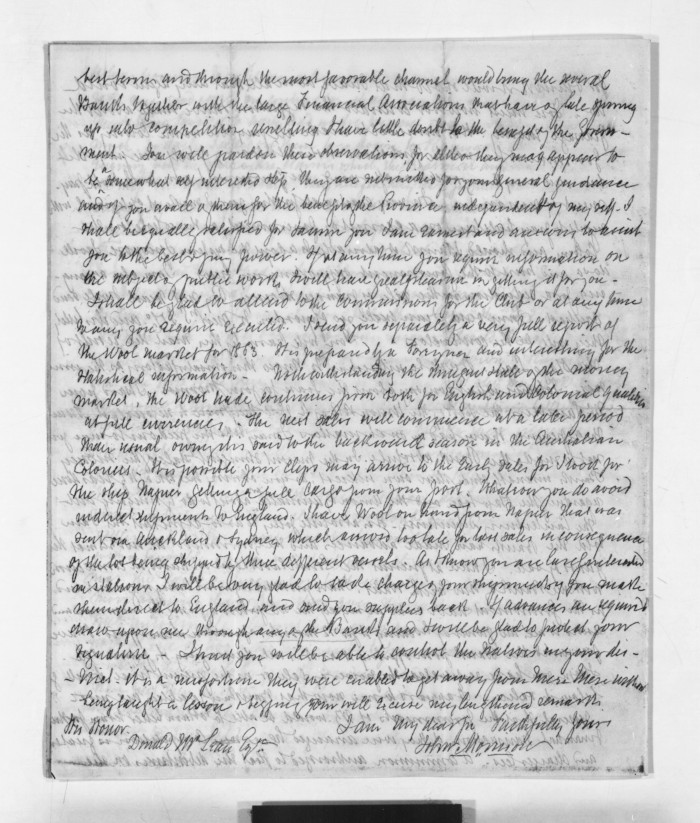 best terms and through the most favorable channel would bring the several
Banks together with the large Financial Associations that have of late sprung
up into competition resulting I have little doubt to the benefit of the Govern-
ment. You will pardon these observations for altho they may appear to
be "somewhat" they are submitted for your general guidance
and if you avail of them for the benefit of the Province independent of myself I
shall be equally for you I am earnest and anxious to assist
you to the best of my power. If at any time you require information on
the subject of public works I will have great pleasure in getting it for you -
I shall be glad to attend to the commissions for the Club or at any time
to any you require executed. I send you separately a very full report of
the Wool market for 1863. It is prepared by a Foreigner and interesting for the
statistical information - Notwithstanding the stringent state of the money
market, the Wool trade continues firm both for English and Colonial qualities
at full currencies. The next sales will commence at a later period
than usual owing it is said to the backward season in the Australian
Colonies. It is possible your clips may arrive to the Early Sales for I look for
the ship Napier getting a full cargo from your port. Whatever you do avoid
indirect shipments to England. I have Wool on hand from Napier that was
sent via Auckland & Sydney which arrived too late for last sales in consequence
of the lot being shipped by three different vessels. As I know you are
on stations I will be very glad to take charge of your shipments if you make
them direct to England and send you supplies back. If advances are required
draw upon me through any of the Banks and I will be glad to protect your
signature - I trust you will be able to control the Natives in your dis-
-trict. It is a misfortune they were enabled to get away from Mere Mere without
being taught a lesson & begging you will excuse my lengthened remarks
I am My dear Sir Faithfully yours
His Honor
Donald McLean Esqre
John Morrison